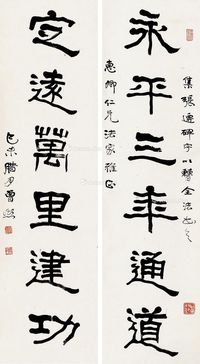 集張遷碑字以
永平三年通道
惠卿仁兄法家雅正
定遠萬里建功
己未臘月曾熙